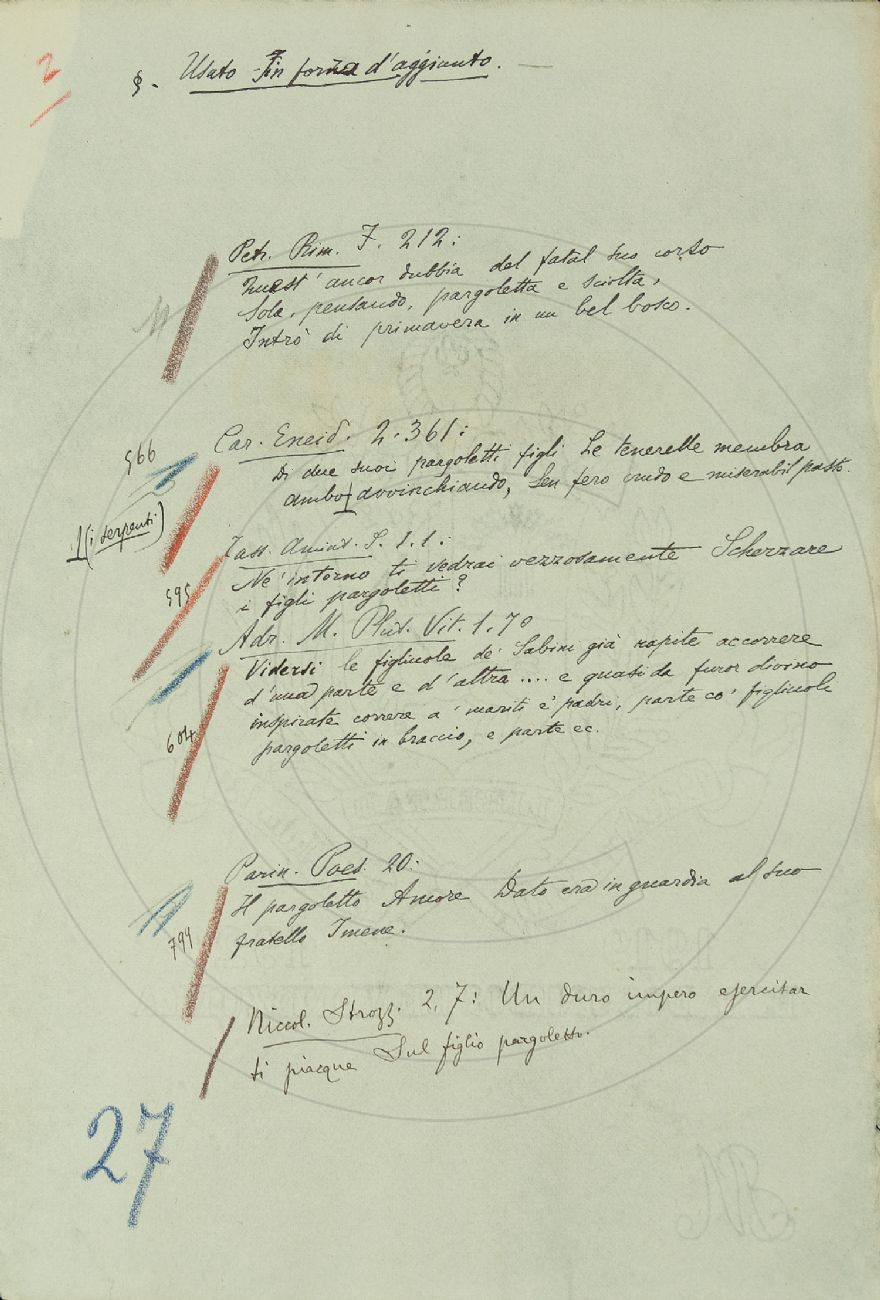 2
§. Usato in forza d'aggiunto.
Petr. Rim. F. 212:
Quest' ancor dubbia del fatal suo corso
Sola, pensando, pargoletta e sciolta,
Intrò di primavera in un bel bosco.
566
Car. Eneid. 2. 361:
Di due suoi pargoletti figli Le tenerelle membra
ambo avvinchiando, Sen fero crudo e miserabil pasto.
(i serpenti)
Tass. Amint. S. 1. 1:
595
Nè intorno ti vedrai vezzosamente Scherzare
i figli pargoletti?
Adr. M. Plut. Vit. 1. 70
Vidersi le figliuole de' Sabini già rapite accorrere
d'una parte e d'altra .... e quasi da furor divino
inspirate correre a' mariti e padri, parte co' figliuoli
604
pargoletti in braccio, e parte ec.
Parin. Poes. 20:
Il pargoletto Amore Dato era in guardia al suo
794
fratello Imene.
Niccol. Strozz. 2, 7: Un duro impero esercitar
ti piacque Sul figlio pargoletto.
27